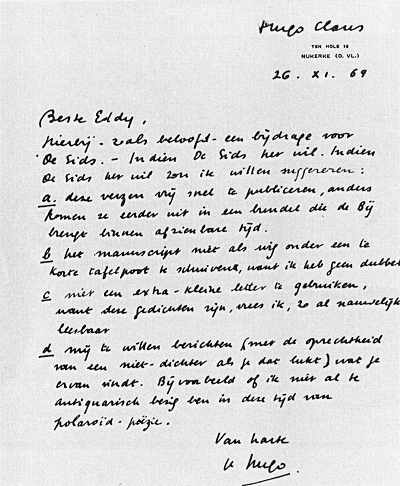 Hugo Claus
TEN HOLE 18
NUKERKE (O. VL.)
26. XI. 69
Beste Eddy,
hierbij - zoals beloofd - een bijdrage voor
De Gids. - Indien De Gids het wil. Indien
De Gids het wil zou ik willen suggereren:
a. deze verzen vrij snel te publiceren, anders
komen ze eerder uit in een bundel die de Bij
brengt binnen afzienbare tijd.
b het manuscript niet als wig onder een te
korte tafelpoot te schuiven, want ik heb geen dubbel
c niet een extra-kleine letter te gebruiken,
want deze gedichten zijn, vrees ik, zo al nauwelijks
leesbaar
d mij te willen berichten (met de oprechtheid
van een niet-dichter als je dat lukt) wat je
ervan vindt. Bijvoorbeeld of ik niet al te
antiquarisch bezig ben in deze tijd van
polaroïd-poëzie.
Van harte
Hugo.